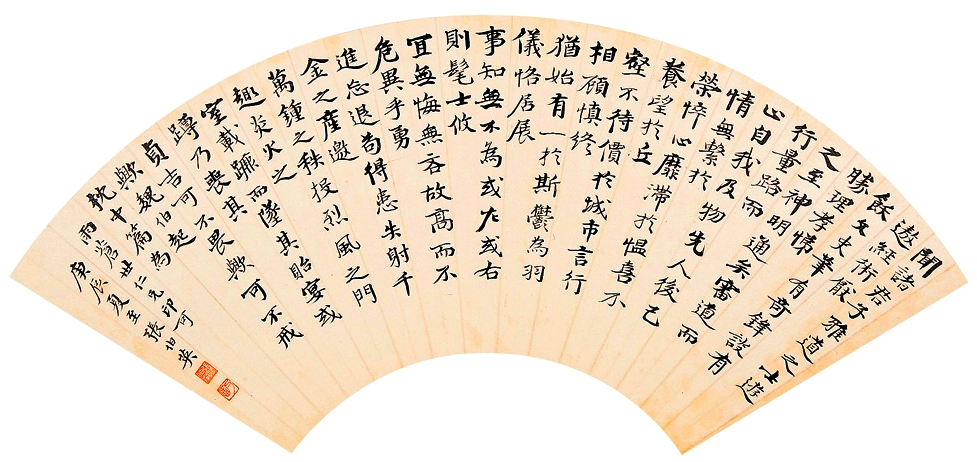 聞諸君子雅道之士遊
遨經術厭
飫文史筆有奇鋒設有
勝理孝悌
之至神明通矣審道而
行量路而
止自我及物先人後己
情無繫於
榮悴心靡滯於慍喜不
養望於丘
壑不待價於城市言行
相顧慎終
猶始有一於斯鬱為羽
儀恪居展
事知無不為或左或右
則髦士攸
宜無悔無吝故高而不
危異乎勇
進忘退苟得患失射千
金之產邀
萬鍾之秩投烈風之門
趣炎火之
室載蹶而墜其貽宴或
蹲乃喪其
貞吉可不畏歟可不戒
歟魏伯起
枕中篇為
雨蒼世仁兄印可
庚辰夏至張伯英